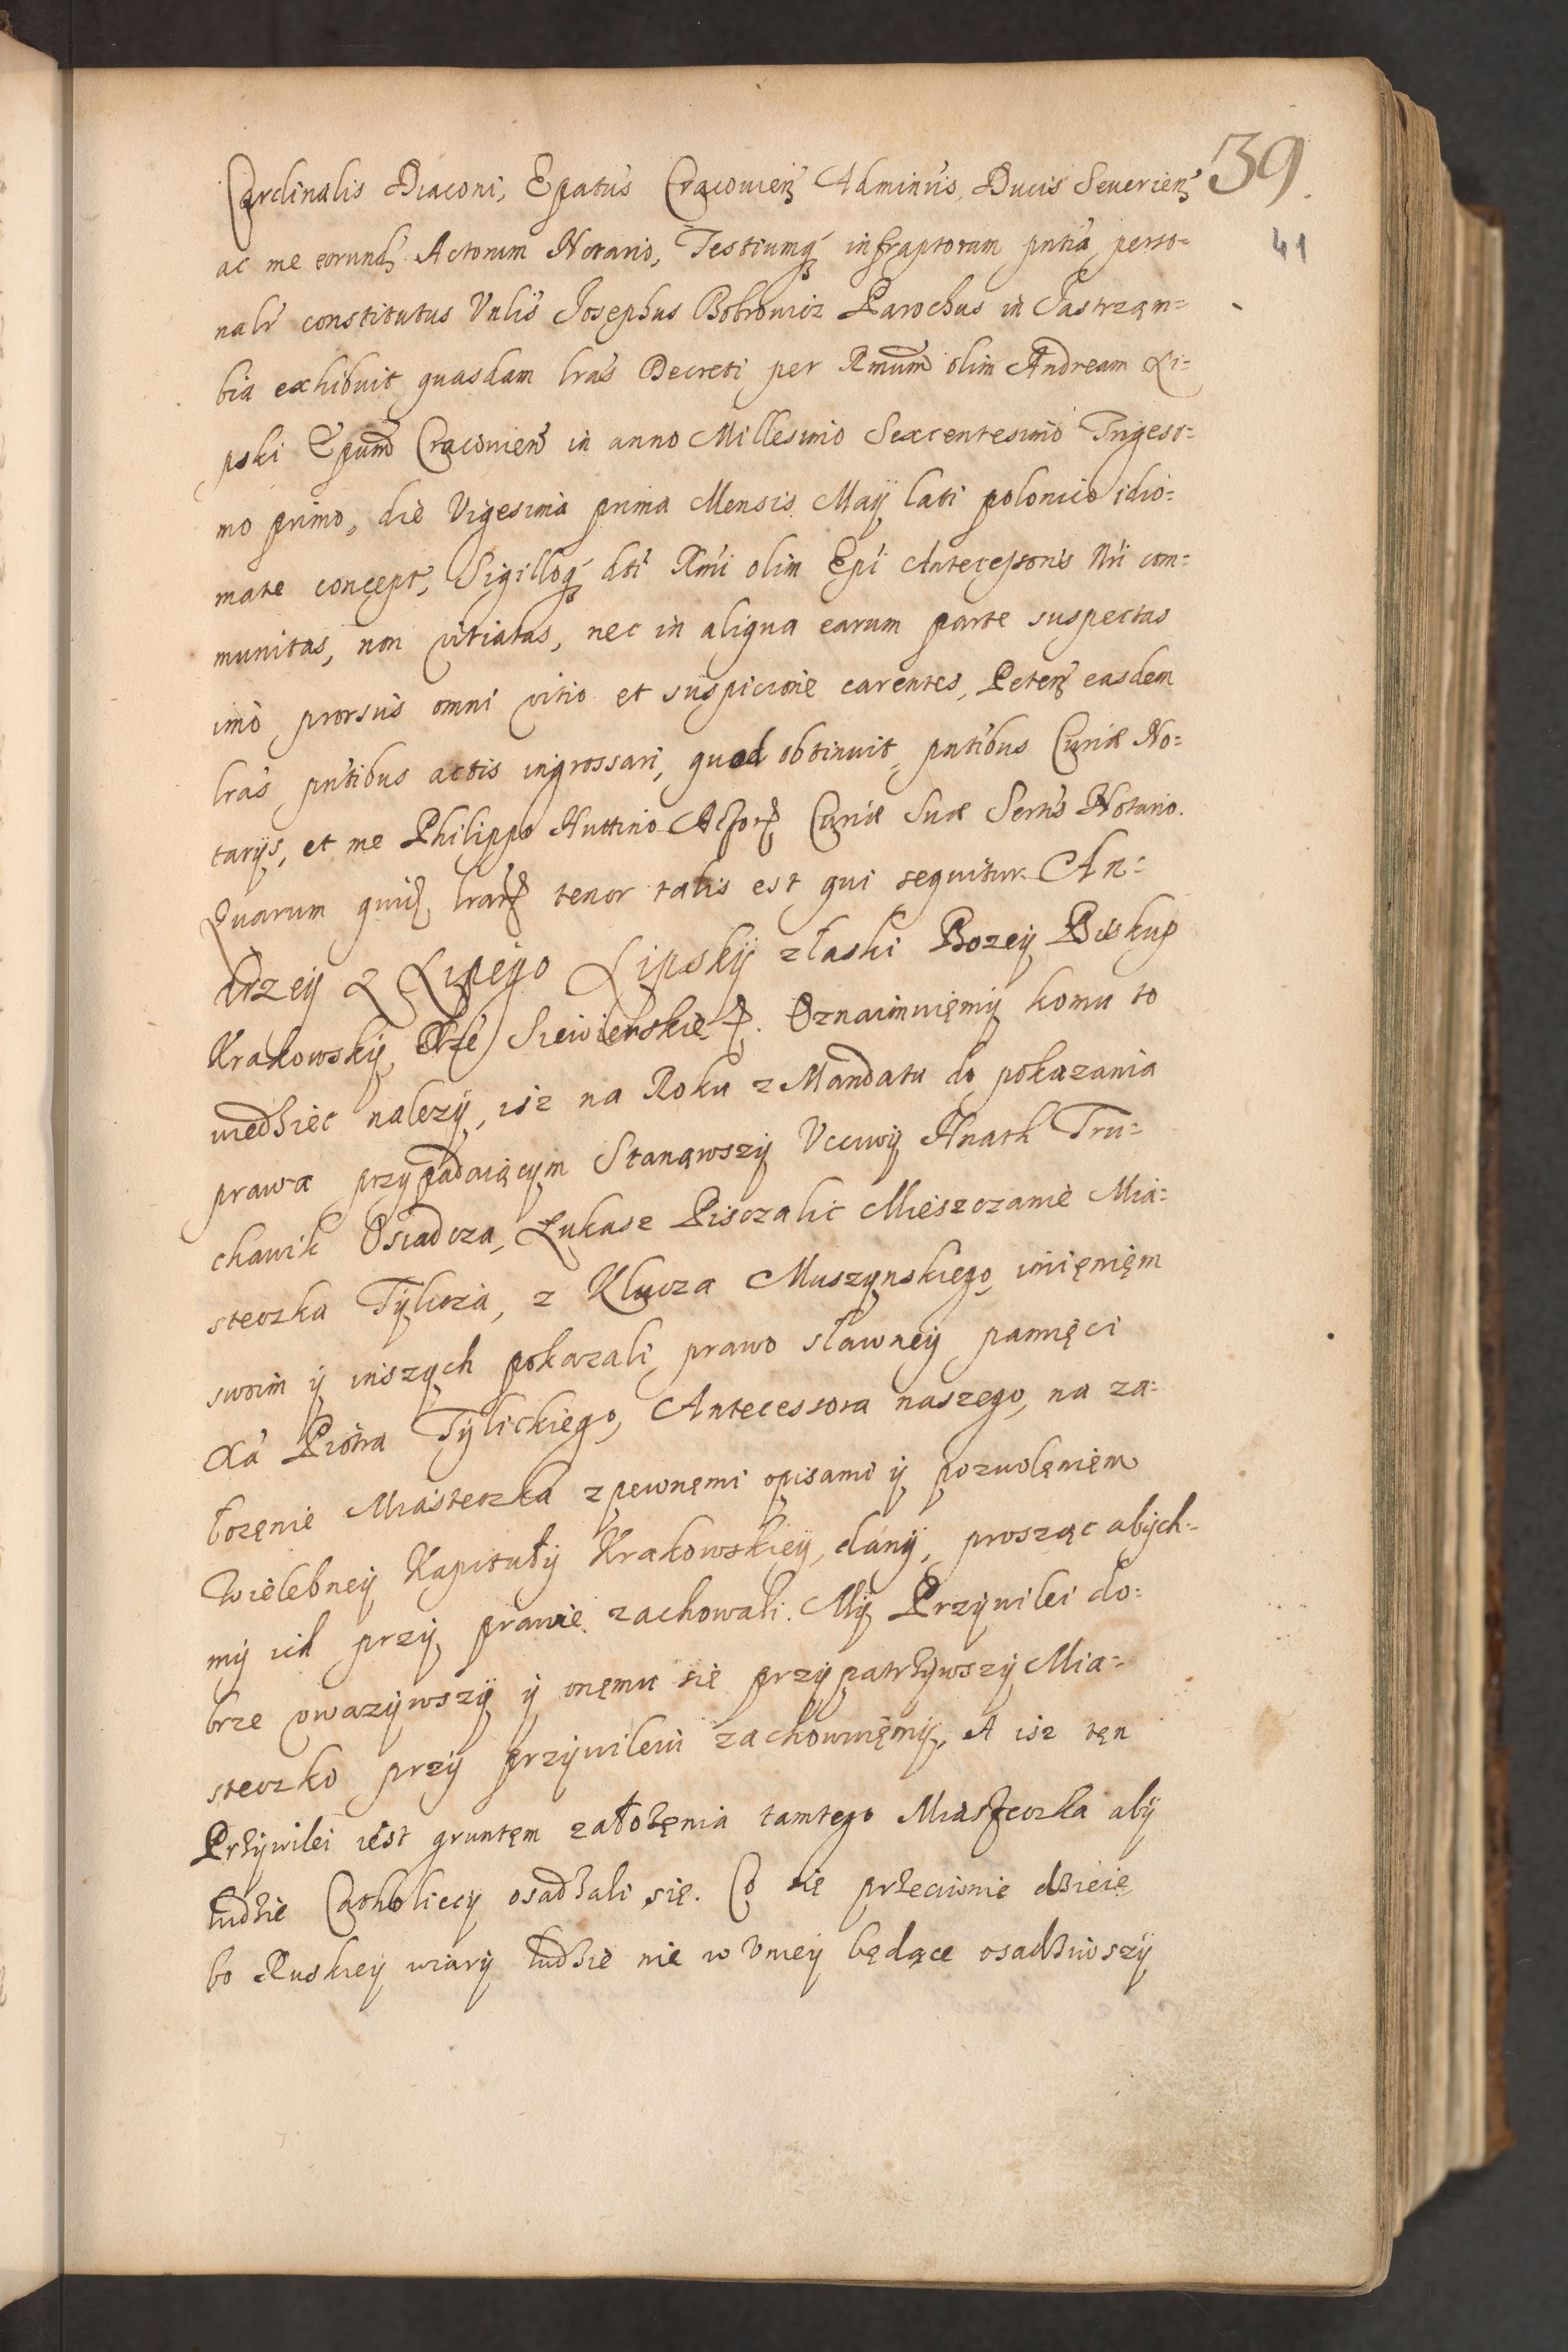 39.
41
Cardinalis Diaconi, Epatus Cracovien Adminris, Ducis Severien
ac me eorund Actorum Notario, Testiumq infraptorum pntia perso=
nalr constitutus Vnlis Josephus Bobrowicz Parochus in Jastrząm=
bia exhibuit quasdam lras Decreti per Rmum olim Andream Li=
pski Epum Cracovien in anno Millesimo Sexcentesimo Trigesi=
mo primo, die Vigesima prima Mensis Maij lati polonico idio=
mate concept, Sigilloq dti Rmi olim Epi Antecessoris Nri com=
munitas, non vitiatas, nec in aliqua earum parte suspectas
imo prorsus omni vitio et suspicione carentes, Peten easdem
lras pntibus actis ingrossari, quod obtinuit, pntibus Curiæ No=
tarijs, et me Philippo Huttino Actor Curiæ Suæ Sertis Notario.
Quarum quid lrar tenor talis est qui sequitur. An=
drzeÿ z Lipego Lipskÿ z łaski Bozeÿ Biskup
Krakowskÿ, Xże Siewierskie. Oznaimuięmÿ komu to
wiedżiec nalezÿ, isz na Roku z Mandatu do pokazania
prawa przÿpadaiącÿm Stanąwszÿ Vcciwÿ Hnath Tru=
chawik Osiadcza, Łukasz Pisczalic Mieszczanie Mia=
steczka Tÿlicza, z Klucza Muszynskiego, imięnięm
swoim ÿ inszÿch pokazali prawo sławneÿ pamięci
Xa Piotra Tÿlickiego, Antecessora naszego, na za=
łozęnie Miasteczka z pewnęmi opisami ÿ pozwolęnięm
Wielebneÿ Kapitułÿ Krakowskieÿ, danÿ, prosząc abÿch=
mÿ ich przÿ prawie zachowali. Mÿ Przÿwilei do=
brze vwazÿwszÿ ÿ onęmu się przÿpatrżÿwszÿ Mia=
steczko przÿ przÿwileiu zachowuięmÿ, A isz tęn
Prżÿwilei iest gruntęm założęnia tamtego Miasteczka abÿ
ludżie Catholiccÿ osadżali się. Co się przeciwnie dżieie
bo Ruskieÿ wiarÿ ludżie nie w Vnieÿ będące osadżiwszÿ